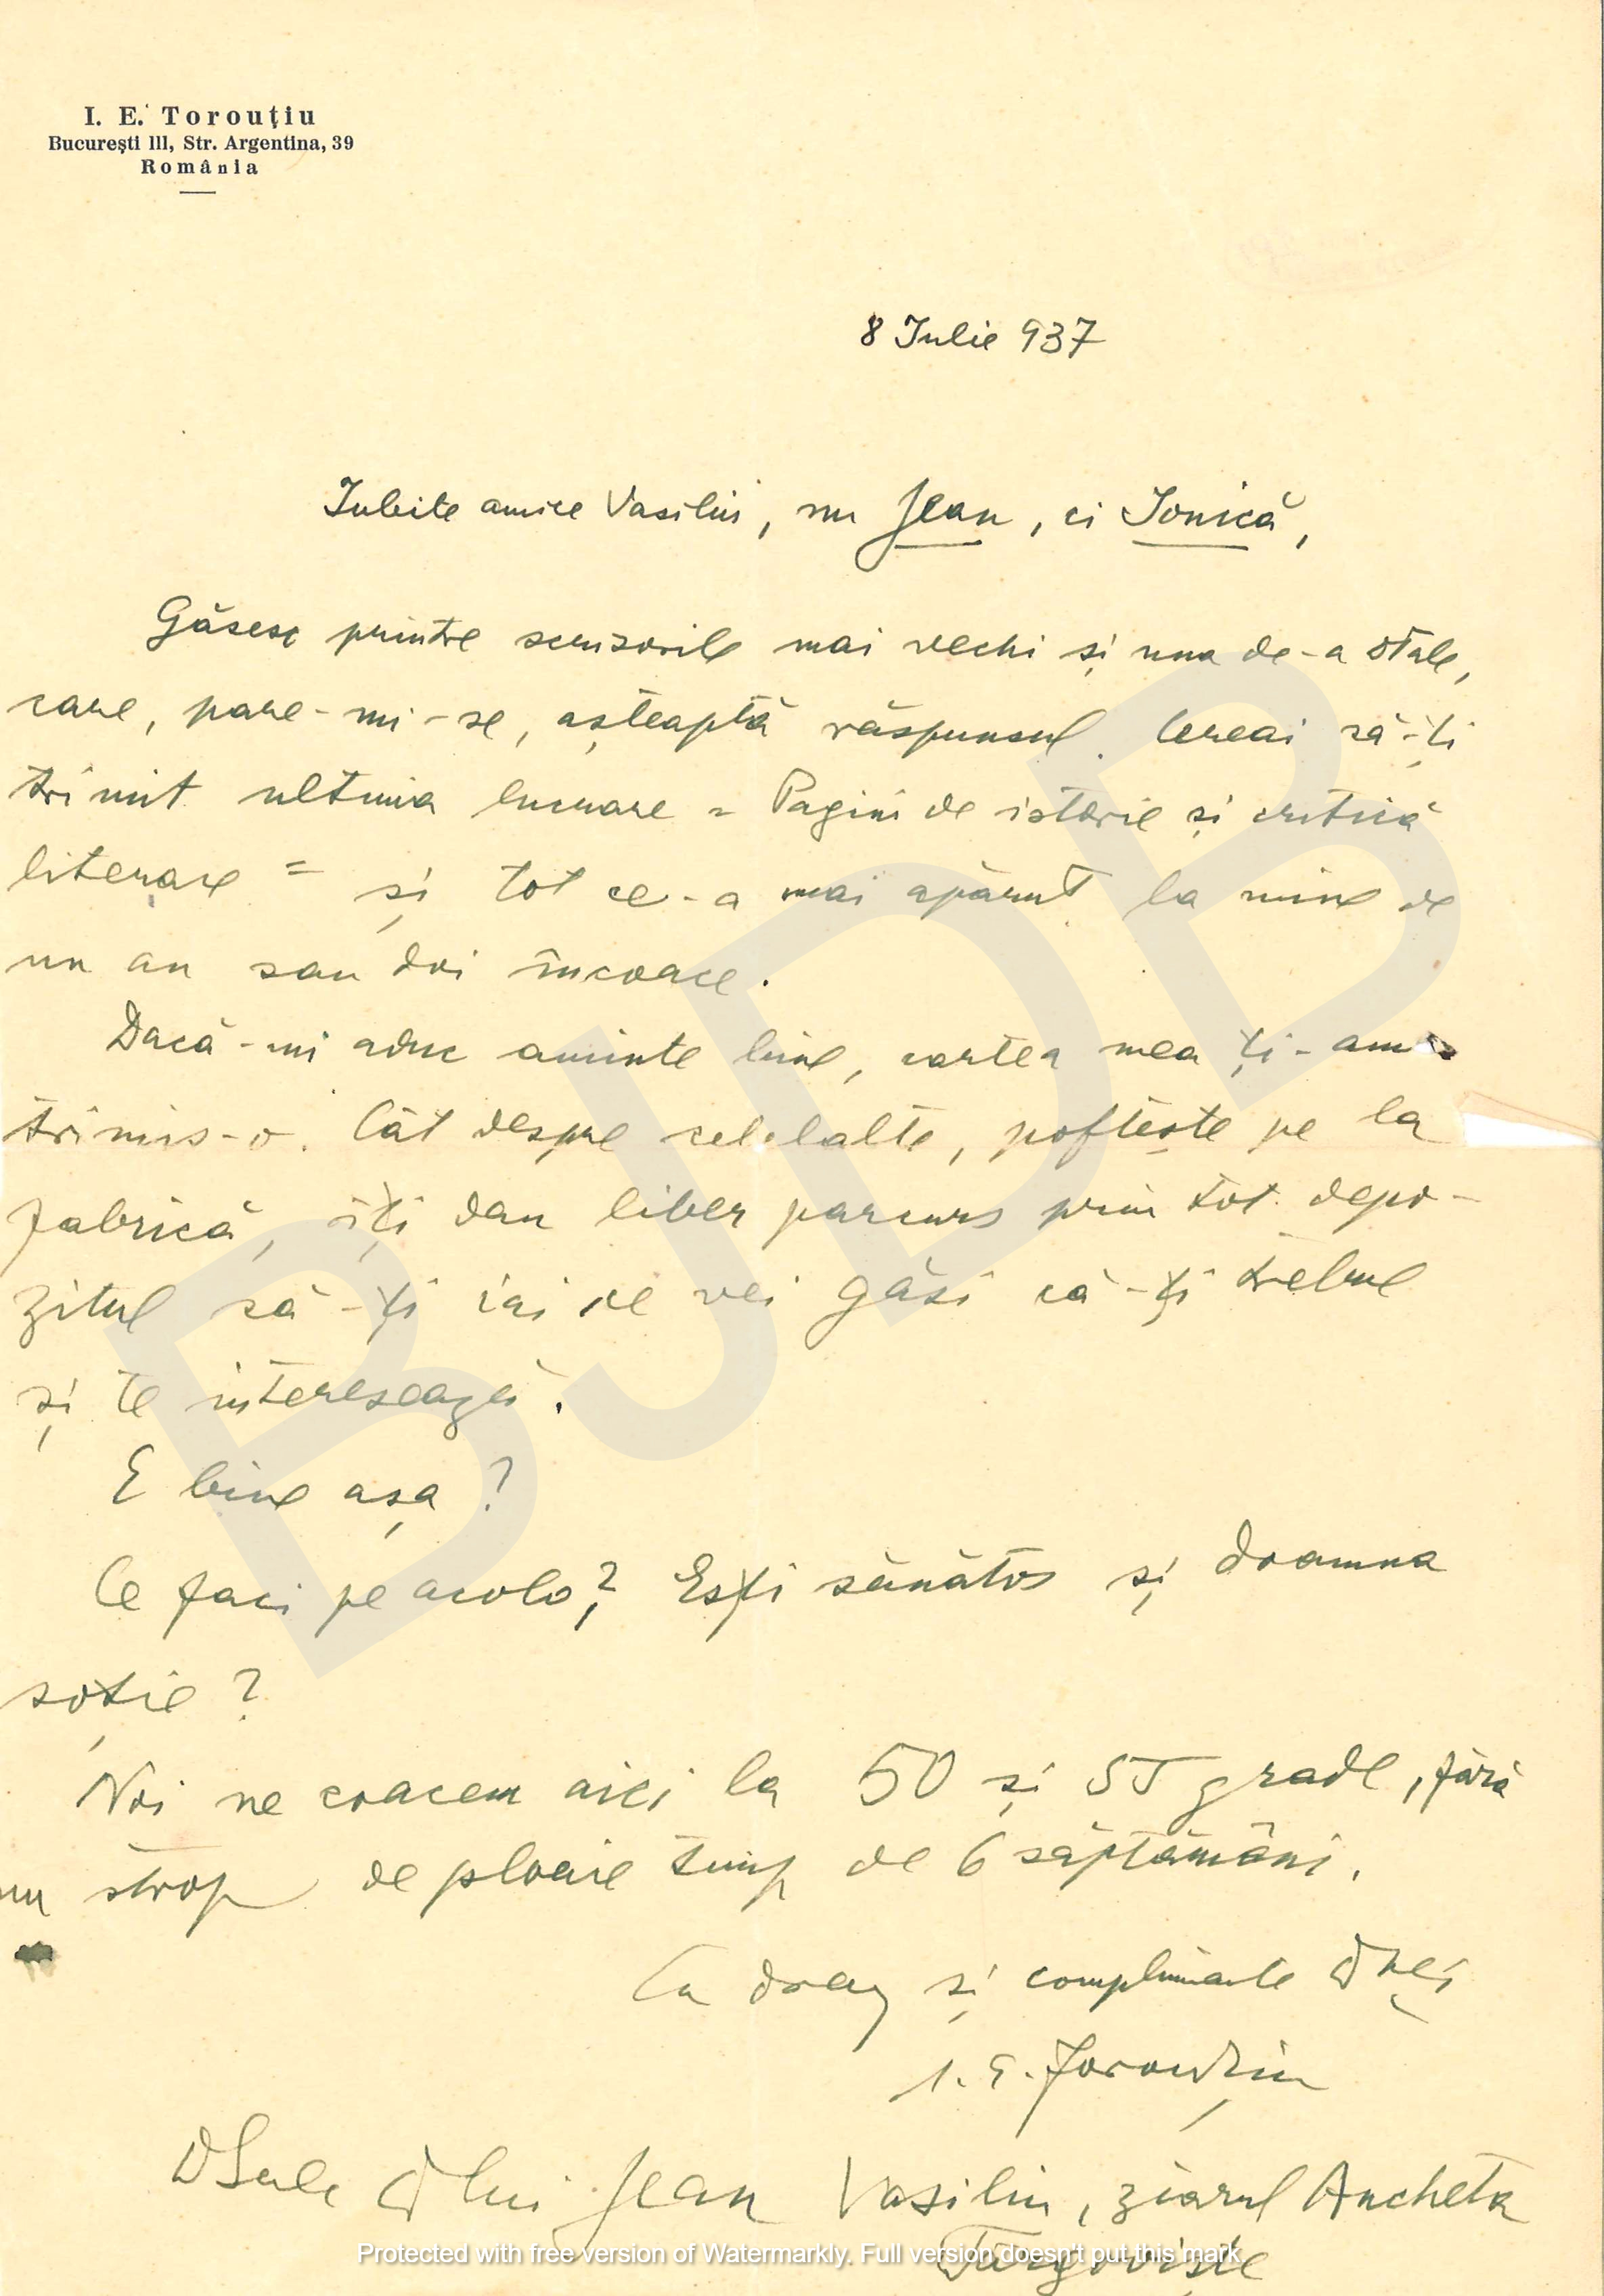 I. E. Torouțiu
București III, Str. Argentina, 39
România
8 Iulie 937
Iubite amice Vasiliu, nu Jean, ci Ionică,
Găsesc printre scrisorile mai vechi și una de-a dtale,
care, pare-mi-se, așteaptă răspunsul. Cereai să-ți
trimit ultima lucrare = Pagini de istorie și critică
literară = și tot ce-a mai apărut la mine de
un an sau doi încoace.
Dacă-mi aduc aminte bine, cartea mea ți-am
trimis-o. Cât despre celelalte, poftește pe la
fabrică, îți dau liber parcurs prin tot depo-
zitul să-ți iei ce vei găsi că-ți trebue
și te interesează.
E bine așa?
Ce faci pe acolo? Ești sănătos și doamna
soție?
Noi ne coacem aici la 50 și 55 grade, fără
un strop de ploaie timp de 6 săptămâni.
Cu drag și complimente dnei
I. E. Torouțiu
DSale dlui Jean Vasiliu, ziarul Ancheta
Târgoviște
BJDB
Protected with free version of Watermarkly. Full version doesn't put this mark.